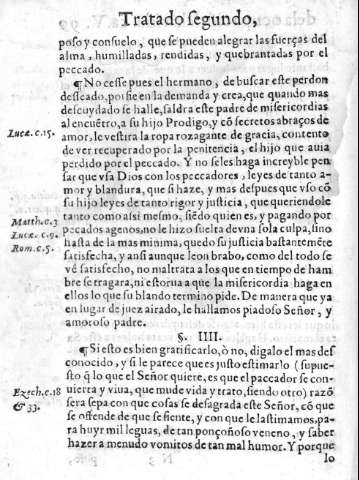 Tratado segundo,
poso y consuelo, que se pueden alegrar las fuerças del
alma, humilladas, rendidas, y quebrantadas por el
peccado.
¶No cesse pues el hermano, de buscar este perdon
desseado, porfie en la demanda y crea, que quando mas
descuydado se halle, saldra este padre de misericordias
al encuẽtro, a su hijo Prodigo, y cõ secretos abraços de
Lucæ.c.15.
amor, le vestira la ropa rozagante de gracia, contento
de ver recuperado por la penitencia, el hijo que auia
perdido por el peccado. Y no se les haga increyble pen
sar que vsa Dios con los peccadores, leyes de tanto a-
mor y blandura, que si haze, y mas despues que vso cõ
su hijo leyes de tanto rigor y justicia, que queriendole
Matth.c.3.
tanto como asi mesmo, siẽdo quien es, y pagando por
Lucæ.c.9.
pecados agenos, no le hizo suelta de vna sola culpa, sino
Rom.c.5.
hasta de la mas minima, quedo su justicia bastantemẽte
satisfecha, y ansi aunque leon brabo, como del todo se
vé satisfecho, no maltrata a los que en tiempo de ham
bre se tragara, ni estorua a que la misericordia haga en
ellos lo que su blando termino pide. De manera que ya
en lugar de juez airado, le hallamos piadoso Señor, y
amoroso padre.
§. IIII.
¶Si esto es bien gratificarlo, ò no, digalo el mas des
conocido, y si le parece que es justo estimarlo (supue-
sto q̃ lo que el Señor quiere, es que el peccador se con-
Ezech.c.18
uierta y viua, que mude vida y trato, siendo otro) razõ
& 33.
sera sepa con que cosas se desagrada este Señor, cõ que
se ofende de que se siente, y con que le lastimamos, pa-
ra huyr mil leguas, de tan ponçoñoso veneno, y saber
hazer a menudo vomitos de tan mal humor. Y porque
lo